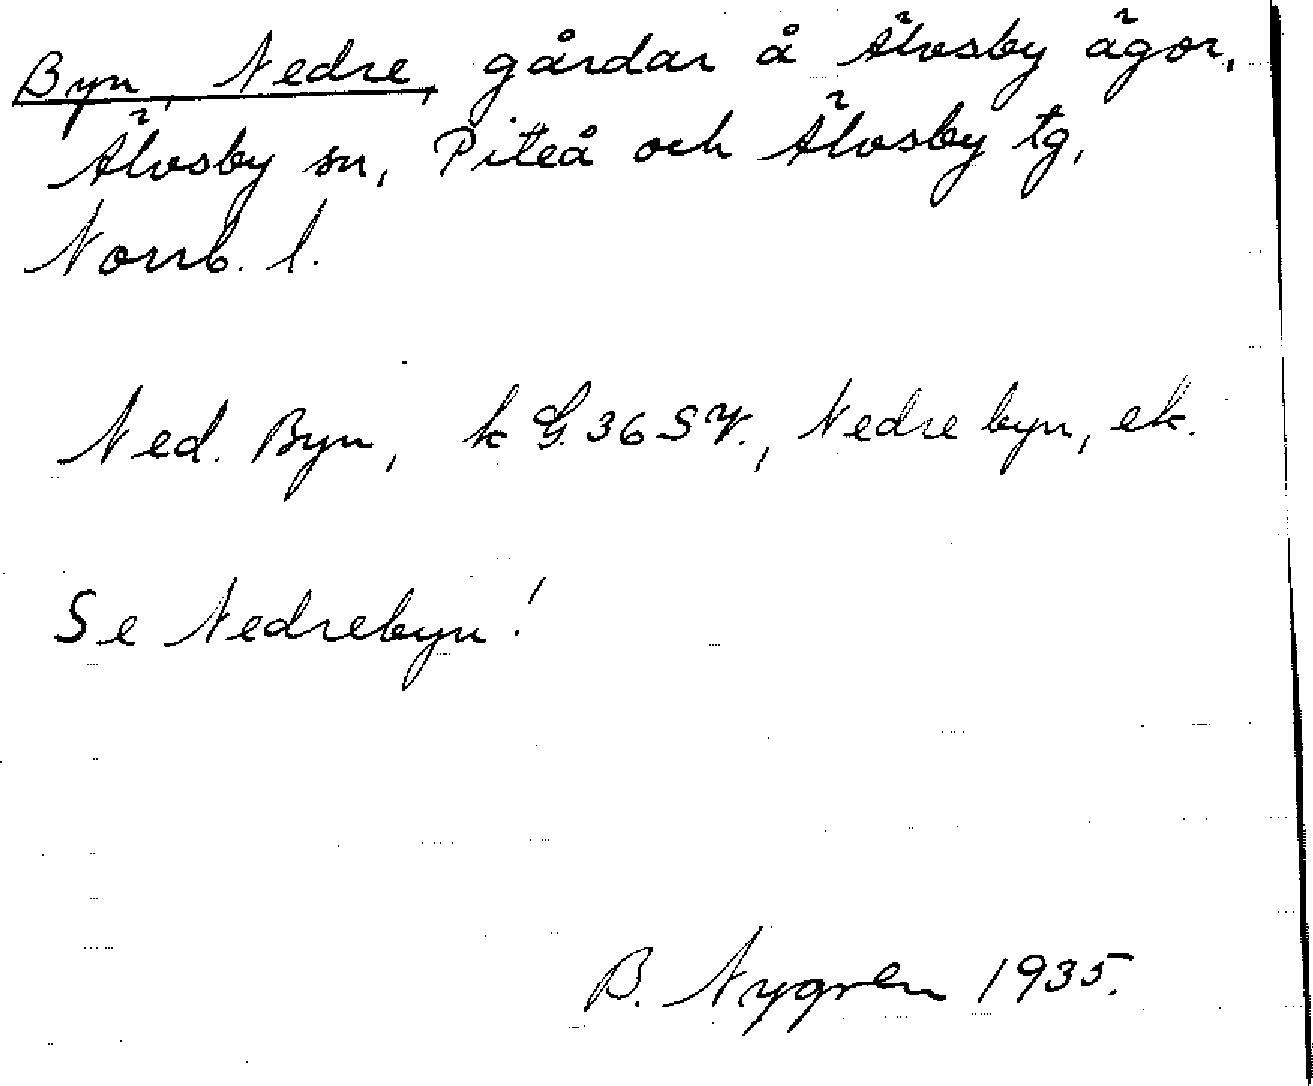 Byn, Nedre, gårdar å Älvsby ägor,
Älvsby sn, Piteå och Älvsby tg,
Norrb. l.
Ned. Byn, k G. 36 SV., Nedre byn, ek.
Se Nedrebyn!
B. Nygren 1935.